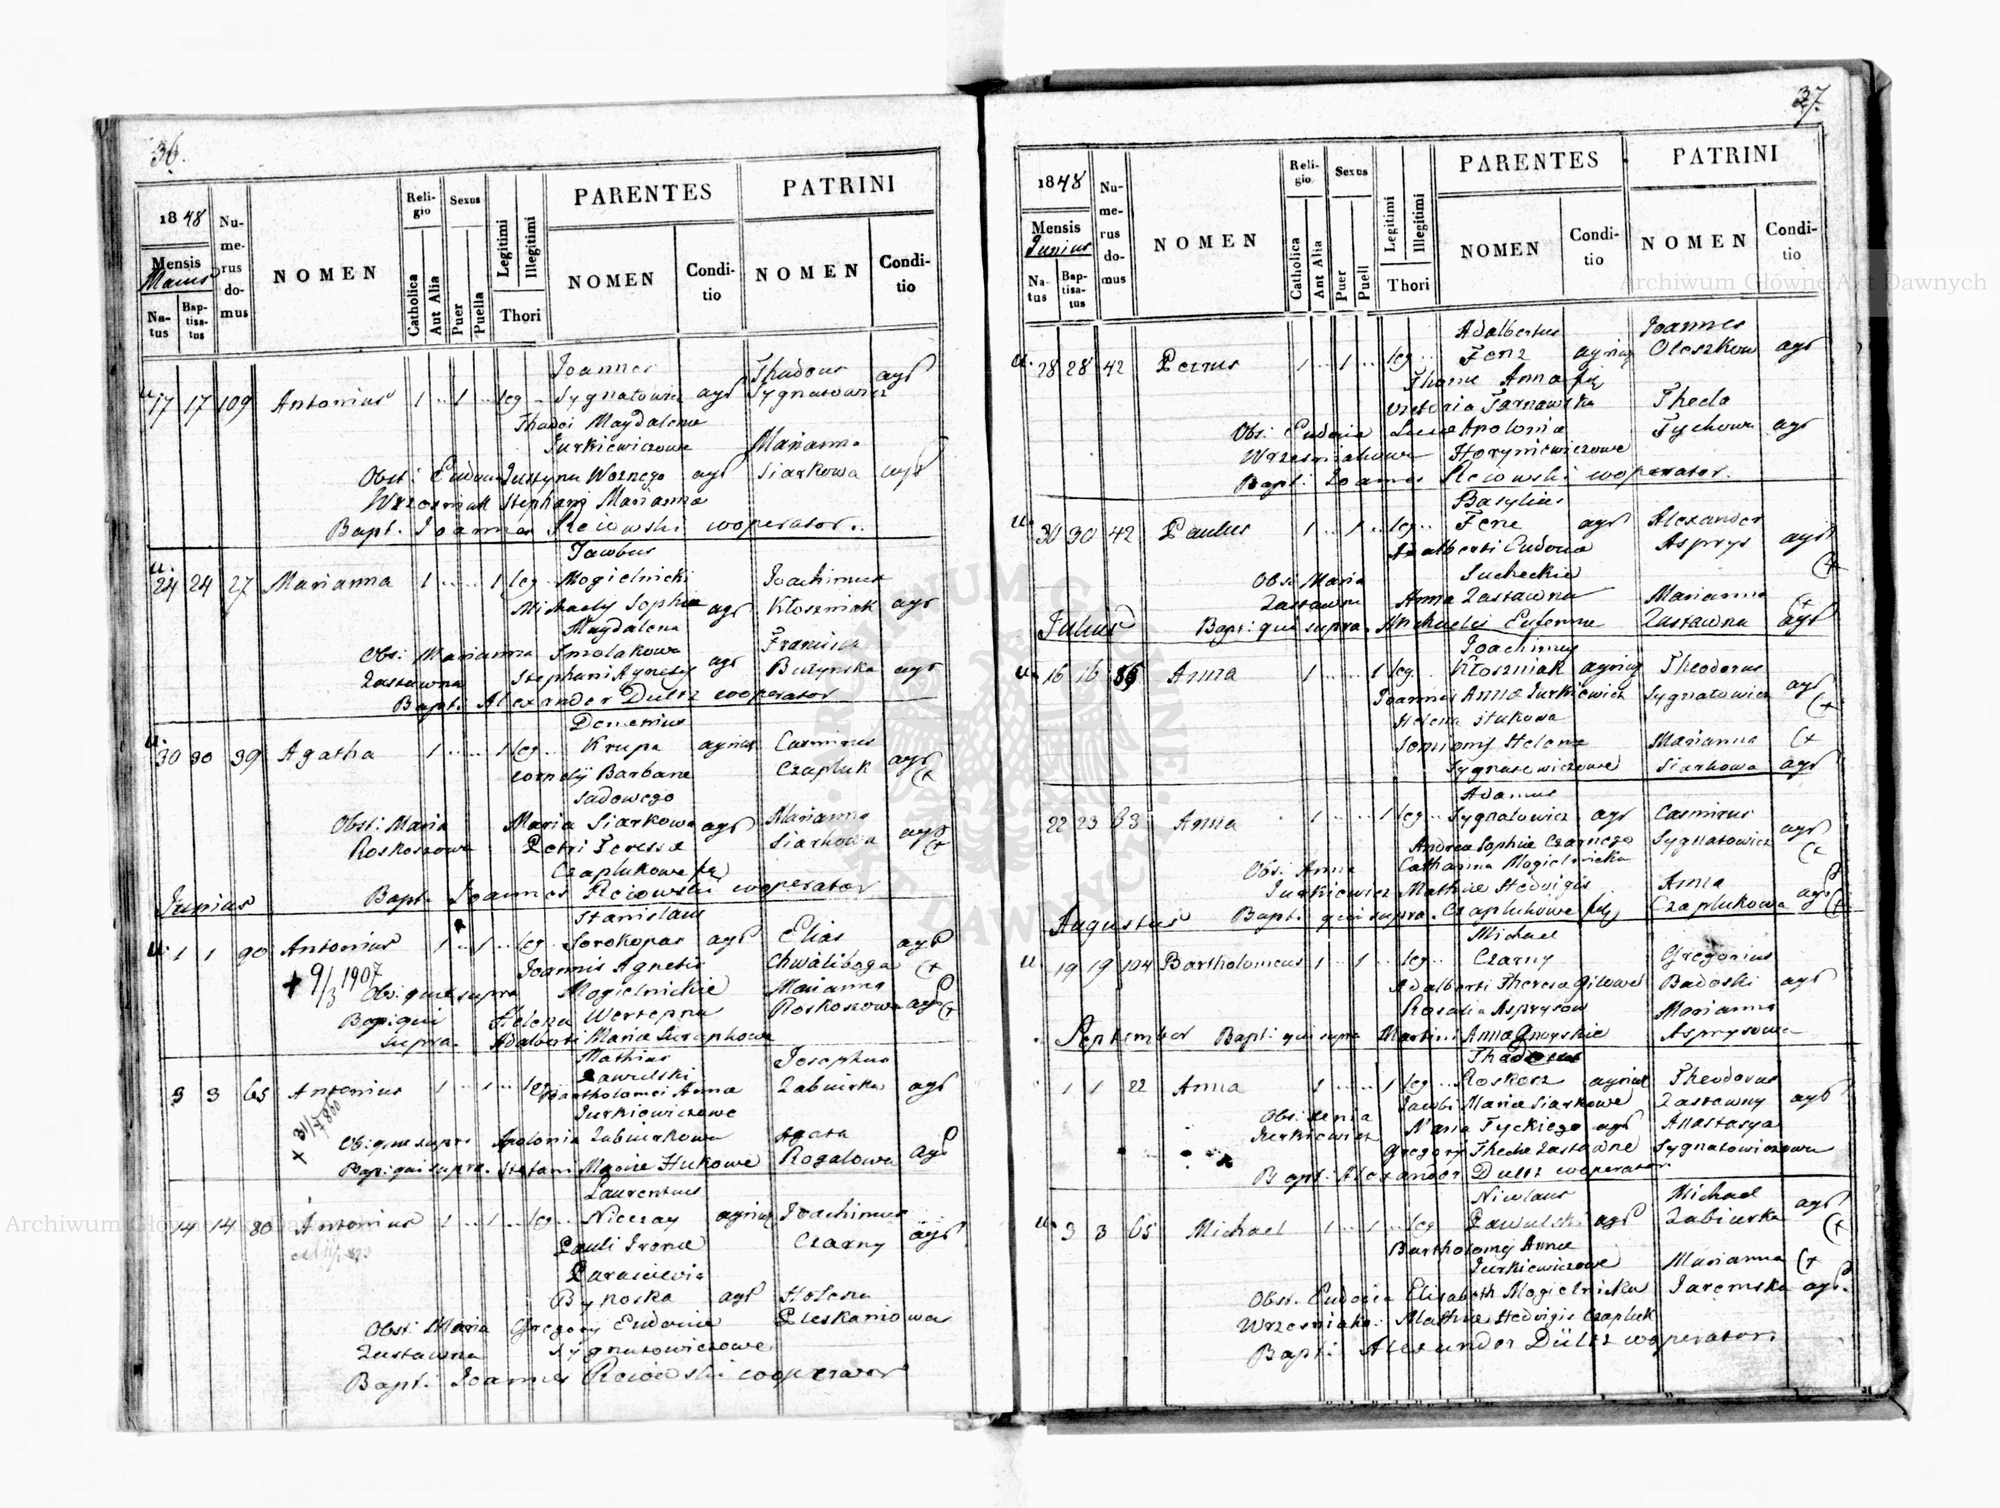 36.
1848
Mensis
Maius
Natus
Baptisatus
Numerus domus
NOMEN
Religio
Catholica
Aut Alia
Sexus
Puer
Puella
Legitimi
Illegitimi
Thori
PARENTES
NOMEN
Conditio
PATRINI
NOMEN
Conditio
Joannes Thadeus
17 17 109 Antonius 1 .. 1 .. leg Sygnatowicz agr Sygnatowicz agr
Thadei Magdalena
Jurkiewiczowe Marianna
Obst: Eudocia Justyna Woznego agr Siarkowa agr
Wrzesniak Stephani Marianna
Bapt. Joannes Reiowski cooperator.
Jacobus
24 24 27 Marianna 1 .. .. 1 leg Mogielnicki Joachimus
Michaelis Sophia agr Kłoszniak agr
Magdalena
Obs: Marianna Smolakowa
Zastawna Stephani agr Buzynska agr
Bapt. Alexander Dultz cooperator
Demetrius
30 30 39 Agatha 1 .. .. 1 leg Krupa Casmirus
Cornelij Barbara Czapluk agr
Sadowego
Obst: Maria Maria Siarkowa agr Marianna
Roskoszowa Petri Teressa Siarkowa agr
Czaplukowe
Junius Bapt. Joannes Reiowski cooperator
Stanislaus
1 1 90 Antonius 1 .. 1 .. leg Sorokopas agr Elias agr
+ 9/3 1907 Joannis Agnetis Chwaliboga
Obs: que supra Mogielnickie Marianna
Bapt: qui Helena Wertepna Roskoszowa agr
supra. Adalberti Maria
Mathias Josephus
3 3 65 Antonius 1 .. 1 .. leg Pawulski Zabiurka agr
Bartholomei Anna
Jurkiewiczowe
Ob: que supra Apolonia Zabiurkowa Agata
Bapt: qui supra. Stefani Maria Hukowe Rogalowa agr
Laurentius
14 14 80 Antonius 1 .. 1 .. leg Niczay Joachimus
Pauli Irena Czarny agr
Parascievia
agr Helena
Obst: Maria Gregory Eudocia Pleskaniowa
Zastawna Sygnatowiczowe
Bapt: Joannes Reiowski cooperator
37.
1848
Mensis
Junius
Natus
Baptisatus
Numerus domus
NOMEN
Religio
Catholica
Ant Alia
Sexus
Puer
Puell
Legitimi
Illegitimi
Thori
PARENTES
NOMEN
Conditio
PATRINI
NOMEN
Conditio
Adalbertus Joannes
28 28 42 Petrus 1 .. 1 .. leg Fenz Oleszkow agr
Thome Anna
Victoria Tarnawska Thecla
Obs: Eudocia Luca Apolonia Tychowa agr
Wrzesniakowa Horyniewiczowe
Bapt: Joannes Reiowski cooperator.
Basylius
30 30 42 Paulus 1 .. 1 .. leg Fenc agr Alexander
Adalberti Eudocia Asprys agr
Sucheckie
Obs: Maria
Zastawna Anna Zastawna Marianna
Julius Bapt: qui supra. Michaelis Eufemie Zastawna agr
Joachimus
16 16 Anna 1 .. .. 1 leg Kłoszniak Theodorus
Joannes Anna Jurkiewicz Sygnatowicz agr
Helena Hukowa
Helene Marianna
Sygnatowiczowe Siarkowa agr
Adamus
22 23 63 Anna 1 .. .. 1 leg Sygnatowicz agr Casmirus
Andrea Sophie Czarnego Sygnatowicz agr
Obs: Anna Catharina Mogielnicka
Jurkiewicz Mathie Hedvigis Anna
Augustus Bapt: qui supra. Czaplukowe Czaplukowa agr
Michael
19 19 104 Bartholomeus 1 .. 1 .. leg Czarny Gregorius
Adalberti Theresa Badoski agr
Rosalia Asprysow Marianna
September Bapt: qui supra Martini Anna Asprysowa
Thadeus
1 1 22 Anna 1 .. .. 1 leg Roskosz Theodorus
Jacobi Maria Siarkowe Zastawny agr
Obs: Xenia
Jurkiewicz Maria Tyckiego agr Anastasya
Gregory Thecle Zastawne Sygnatowiczowa
Bapt: Alexander Dultz cooperator
Nicolaus Michael
3 3 65 Michael 1 .. 1 .. leg Pawulski agr Zabiurka agr
Bartholomej Anna
Jurkiewiczowe Marianna
Obst. Eudocia Elisabeth Mogielnicka Jaremska agr.
Wrzesniak: Mathie Hedvigis Czapluk
Bapt: Alexander Dültz cooperator.
Archiwum Główne Akt Dawnych
ARCHIWUM GŁÓWNE AKT DAWNYCH